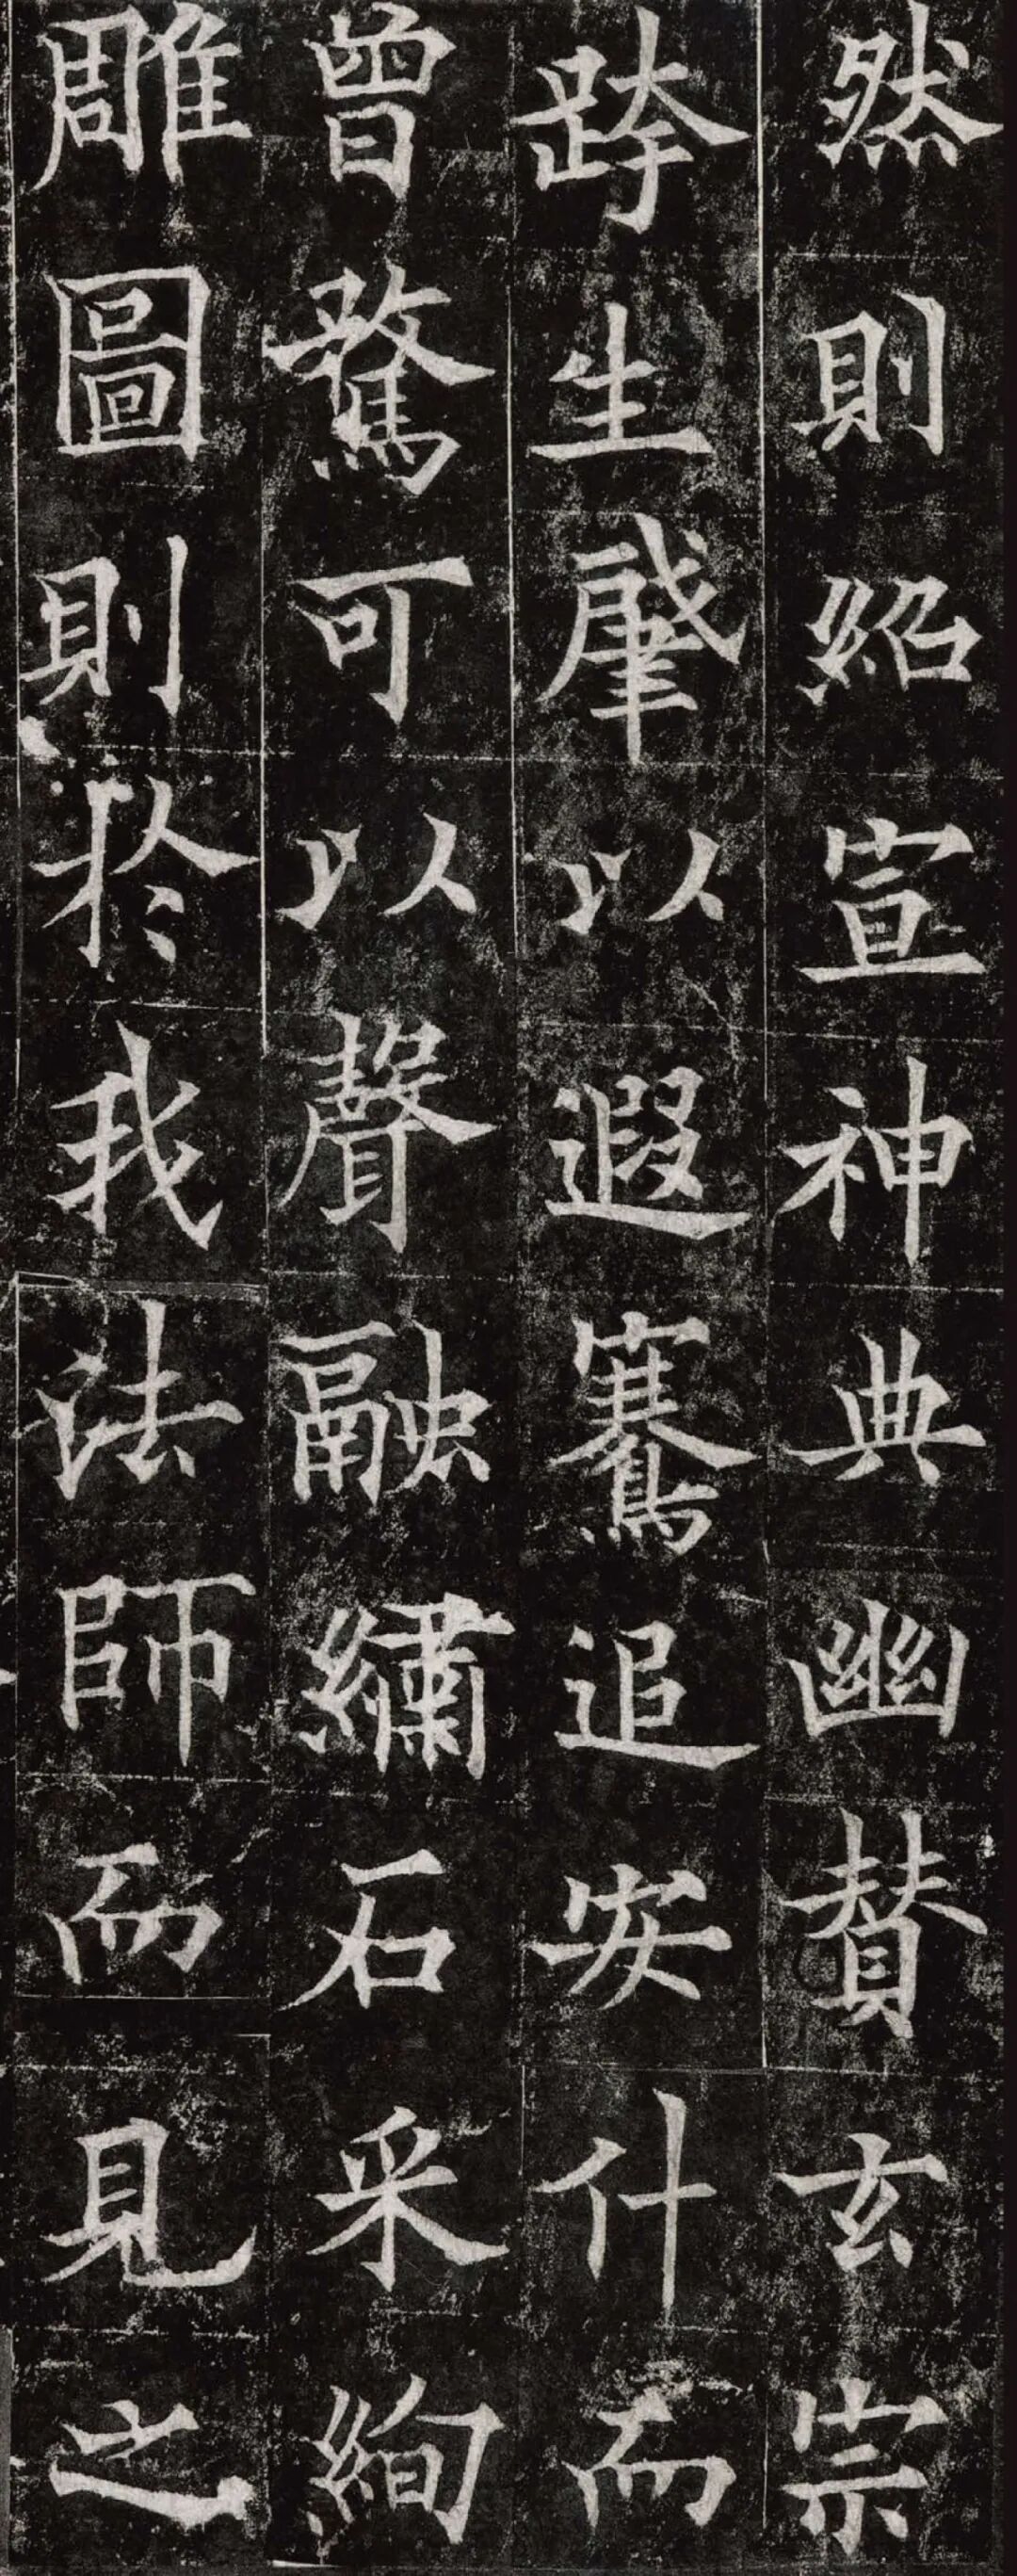 然則紹宣神典幽贊玄宗
跨生肇以遐騫追安什而
曾騖可以聲融繡石采絢
雕圖則於我法師而見之